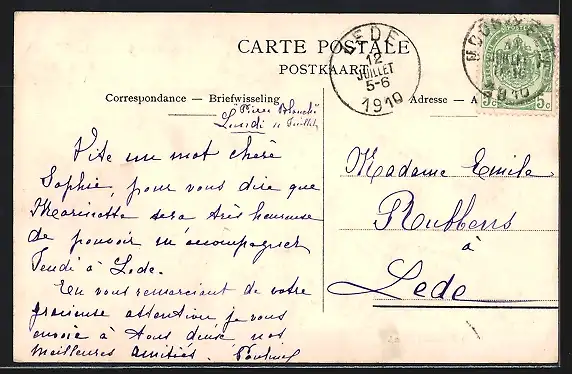 CARTE POSTALE
POSTKAART
Correspondance — Briefwisseling
Adresse — A
LEDE
12
JUILLET
5-6
1910
1910
5c 5c
Lundi 11 Juillet
Vite un mot chère
Sophie, pour vous dire que
Marinette sera très heureuse
de pouvoir m'accompagner
Jeudi à Lede.
En vous remerciant de votre
gracieuse attention je vous
envoie à tous deux nos
meilleures amitiés.
Madame Emile
Rubbens
à
Lede